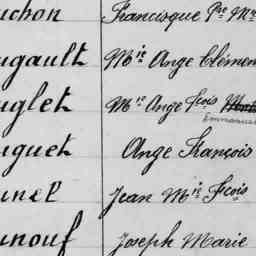 uchon Francisque
ugault Mie Ange Clémen
uglet Mie Ange Fcois
Emmanuel
uguet Ange François
unel Jean Mie Fcois
unouf Joseph Marie